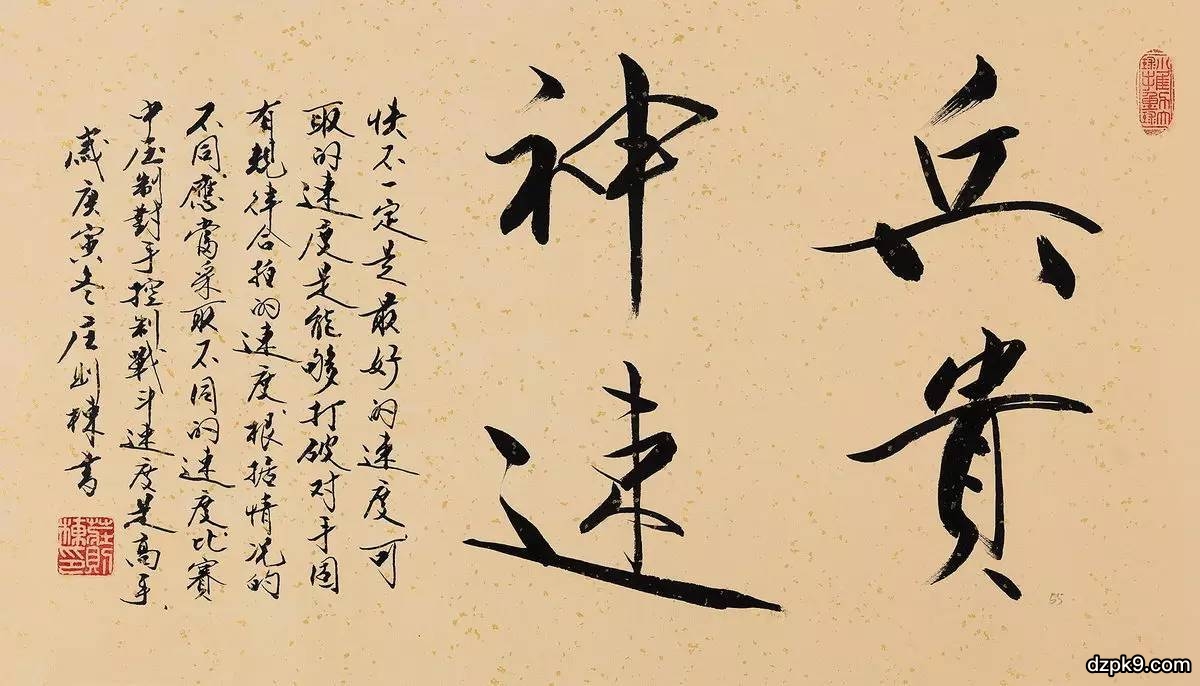 兵貴
神速
快不一定是最好的速度可
取的速度是能够打破对手固
有規律合拍的速度根据情况的
不同應當采取不同的速度比賽
中压制對手控制戰斗速度是高手
歲庚寅冬庄则棟書
莊則棟印
55
dzpk9.com